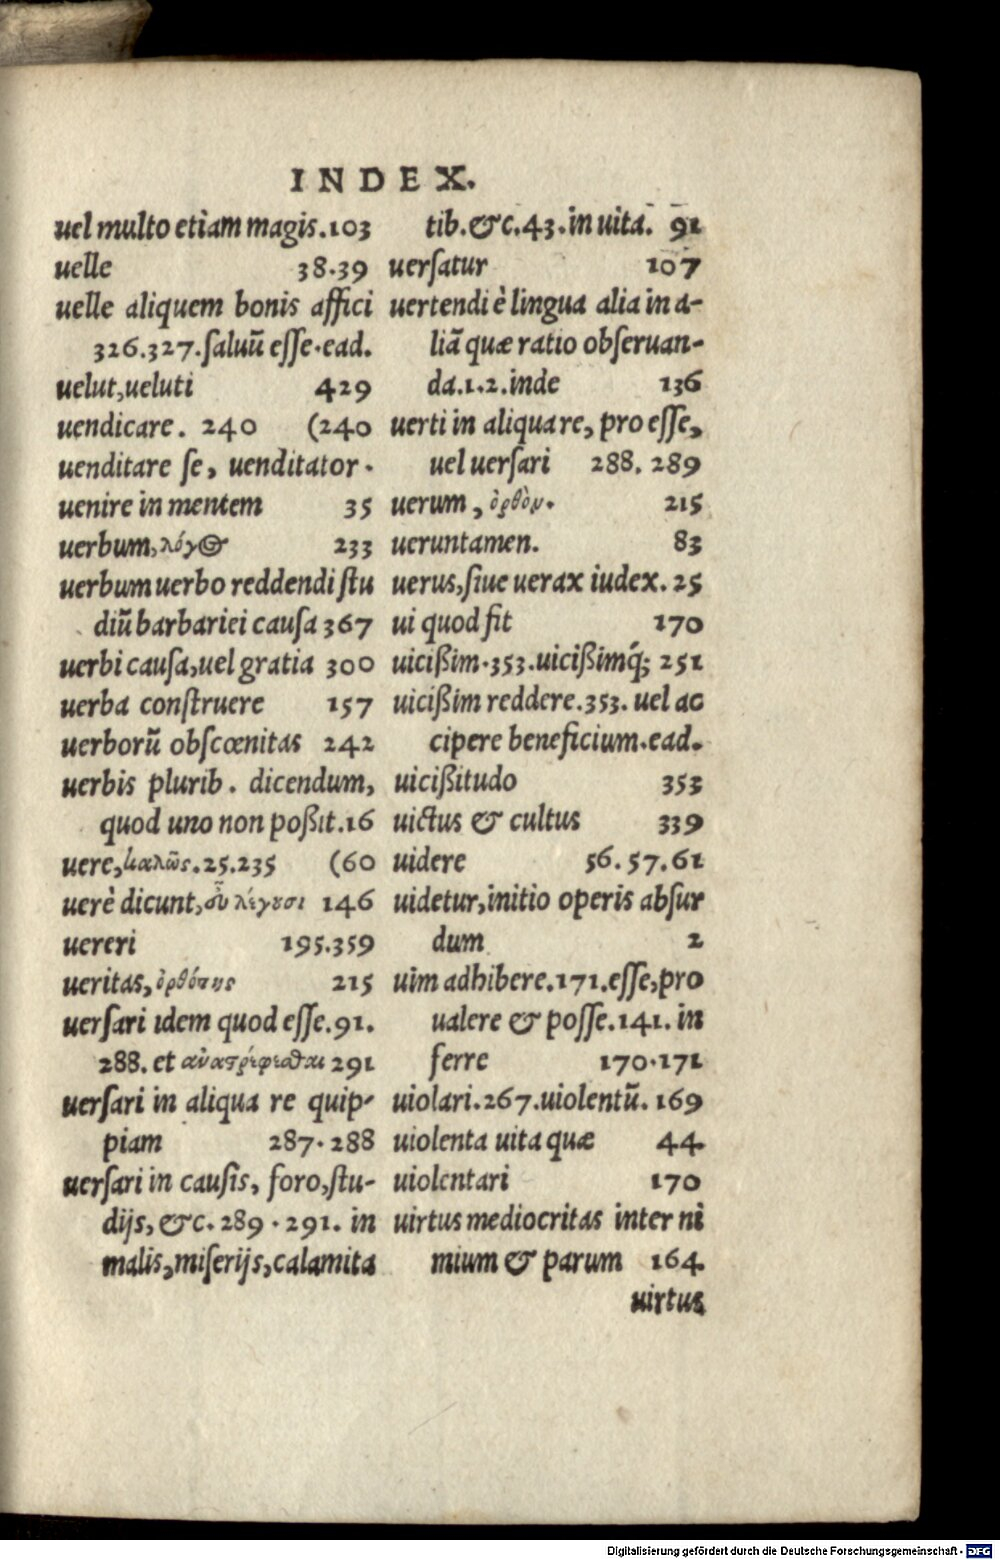 INDEX.
uel multo etiam magis.103
uelle 38.39
uelle aliquem bonis affici
326.327.ſaluũ eſſe.ead.
uelut,ueluti 429
uendicare. 240 (240
uenditare ſe, uenditator.
uenire in mentem 35
uerbum,λόγος 233
uerbum uerbo reddendi ſtu
diũ barbariei cauſa 367
uerbi cauſa,uel gratia 300
uerba conſtruere 157
uerborũ obſcœnitas 242
uerbis plurib. dicendum,
quod uno non poßit.16
uere,καλῶς.25.235 (60
uerè dicunt,εὖ λέγουσι 146
uereri 195.359
ueritas,ὀρθότης 215
uerſari idem quod eſſe.91.
288. et ἀναστρέφεσθαι 291
uerſari in aliqua re quip-
piam 287.288
uerſari in cauſis, foro,ſtu-
dijs, &c. 289.291. in
malis,miſerijs,calamita
tib.&c.43.in uita. 91
uerſatur 107
uertendi è lingua alia in a-
liã quæ ratio obſeruan-
da.1.2.inde 136
uerti in aliqua re, pro eſſe,
uel uerſari 288. 289
uerum, ὀρθὸν. 215
ueruntamen. 83
uerus,ſiue uerax iudex. 25
ui quod fit 170
uicißim.353.uicißimq́; 251
uicißim reddere.353. uel ac
cipere beneficium.ead.
uicißitudo 353
uictus & cultus 339
uidere 56.57.61
uidetur,initio operis abſur
dum 2
uim adhibere.171.eſſe,pro
ualere & poſſe.141. in
ferre 170.171
uiolari.267.uiolentũ. 169
uiolenta uita quæ 44
uiolentari 170
uirtus mediocritas inter ni
mium & parum 164
uirtus
Digitalisierung gefördert durch die Deutsche Forschungsgemeinschaft - DFG